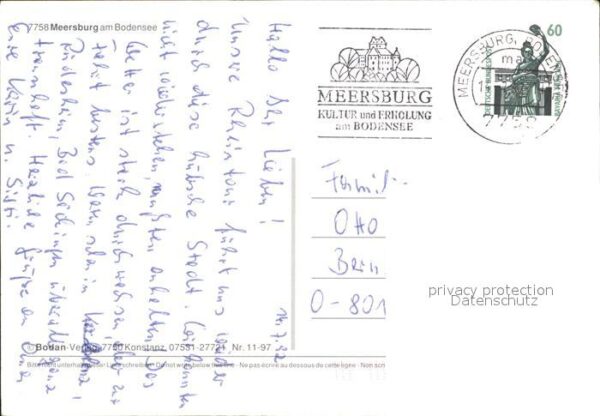 7758 Meersburg am Bodensee
MEERSBURG
KULTUR und ERHOLUNG
am BODENSEE
MEERSBURG, BODENSEE
7758
60
DEUTSCHE BUNDESPOST
Hallo Ihr Lieben!
Unsere Rheintour führt uns wieder
durch diese hübsche Stadt. Wir konnten
nicht widerstehen, mußten anhalten. Das
Wetter ist stark durchwachsen, aber zur
Fahrt bestens. Waren schon in
Rüdesheim, Bad Säckingen überall ganz
traumhaft. Herzliche Grüße an Euch
Eure Karin u. Sigi.
14.7.92
Famil
Otto
Bern
O-801
privacy protection
Datenschutz
© Bodan-Verlag 7750 Konstanz, 07531-27724 Nr. 11-97
Bitte nicht unterhalb dieser Linie schreiben · Do not write below this line · Ne pas écrire au dessous de cette ligne · Non scri